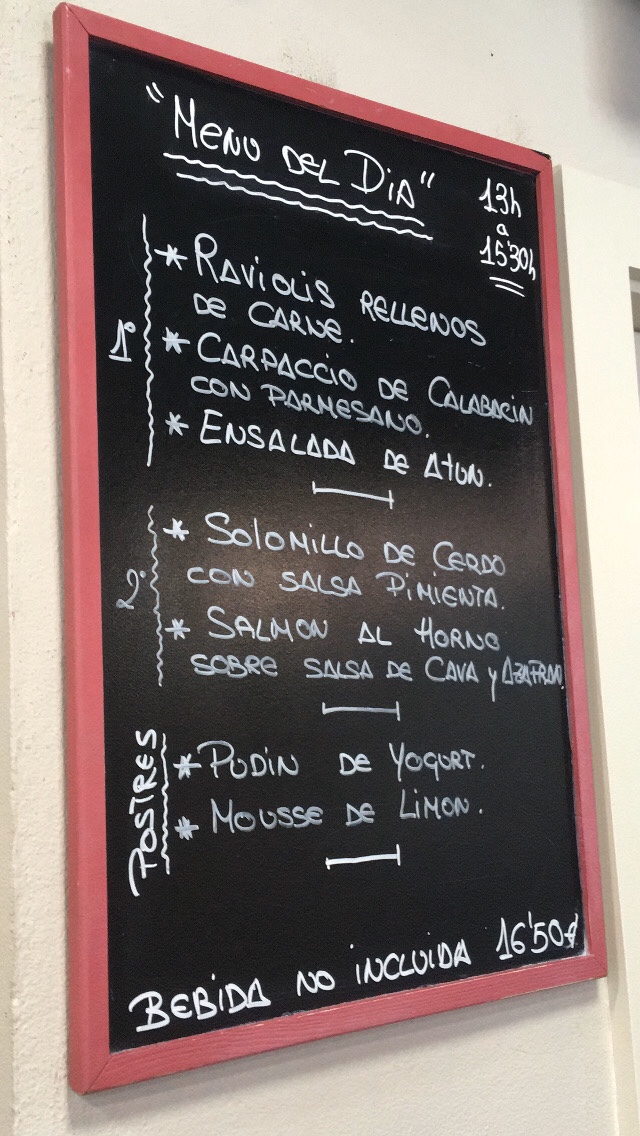 "MENU DEL DIA"
13h
a
15'30h
1º
* RAVIOLIS RELLENOS
DE CARNE.
* CARPACCIO DE CALABACIN
CON PARMESANO.
* ENSALADA DE ATUN.
2º
* SOLOMILLO DE CERDO
CON SALSA PIMIENTA.
* SALMON AL HORNO
SOBRE SALSA DE CAVA Y AZAFRAN.
POSTRES
* PUDIN DE YOGURT.
* MOUSSE DE LIMON.
BEBIDA NO INCLUIDA 16'50€